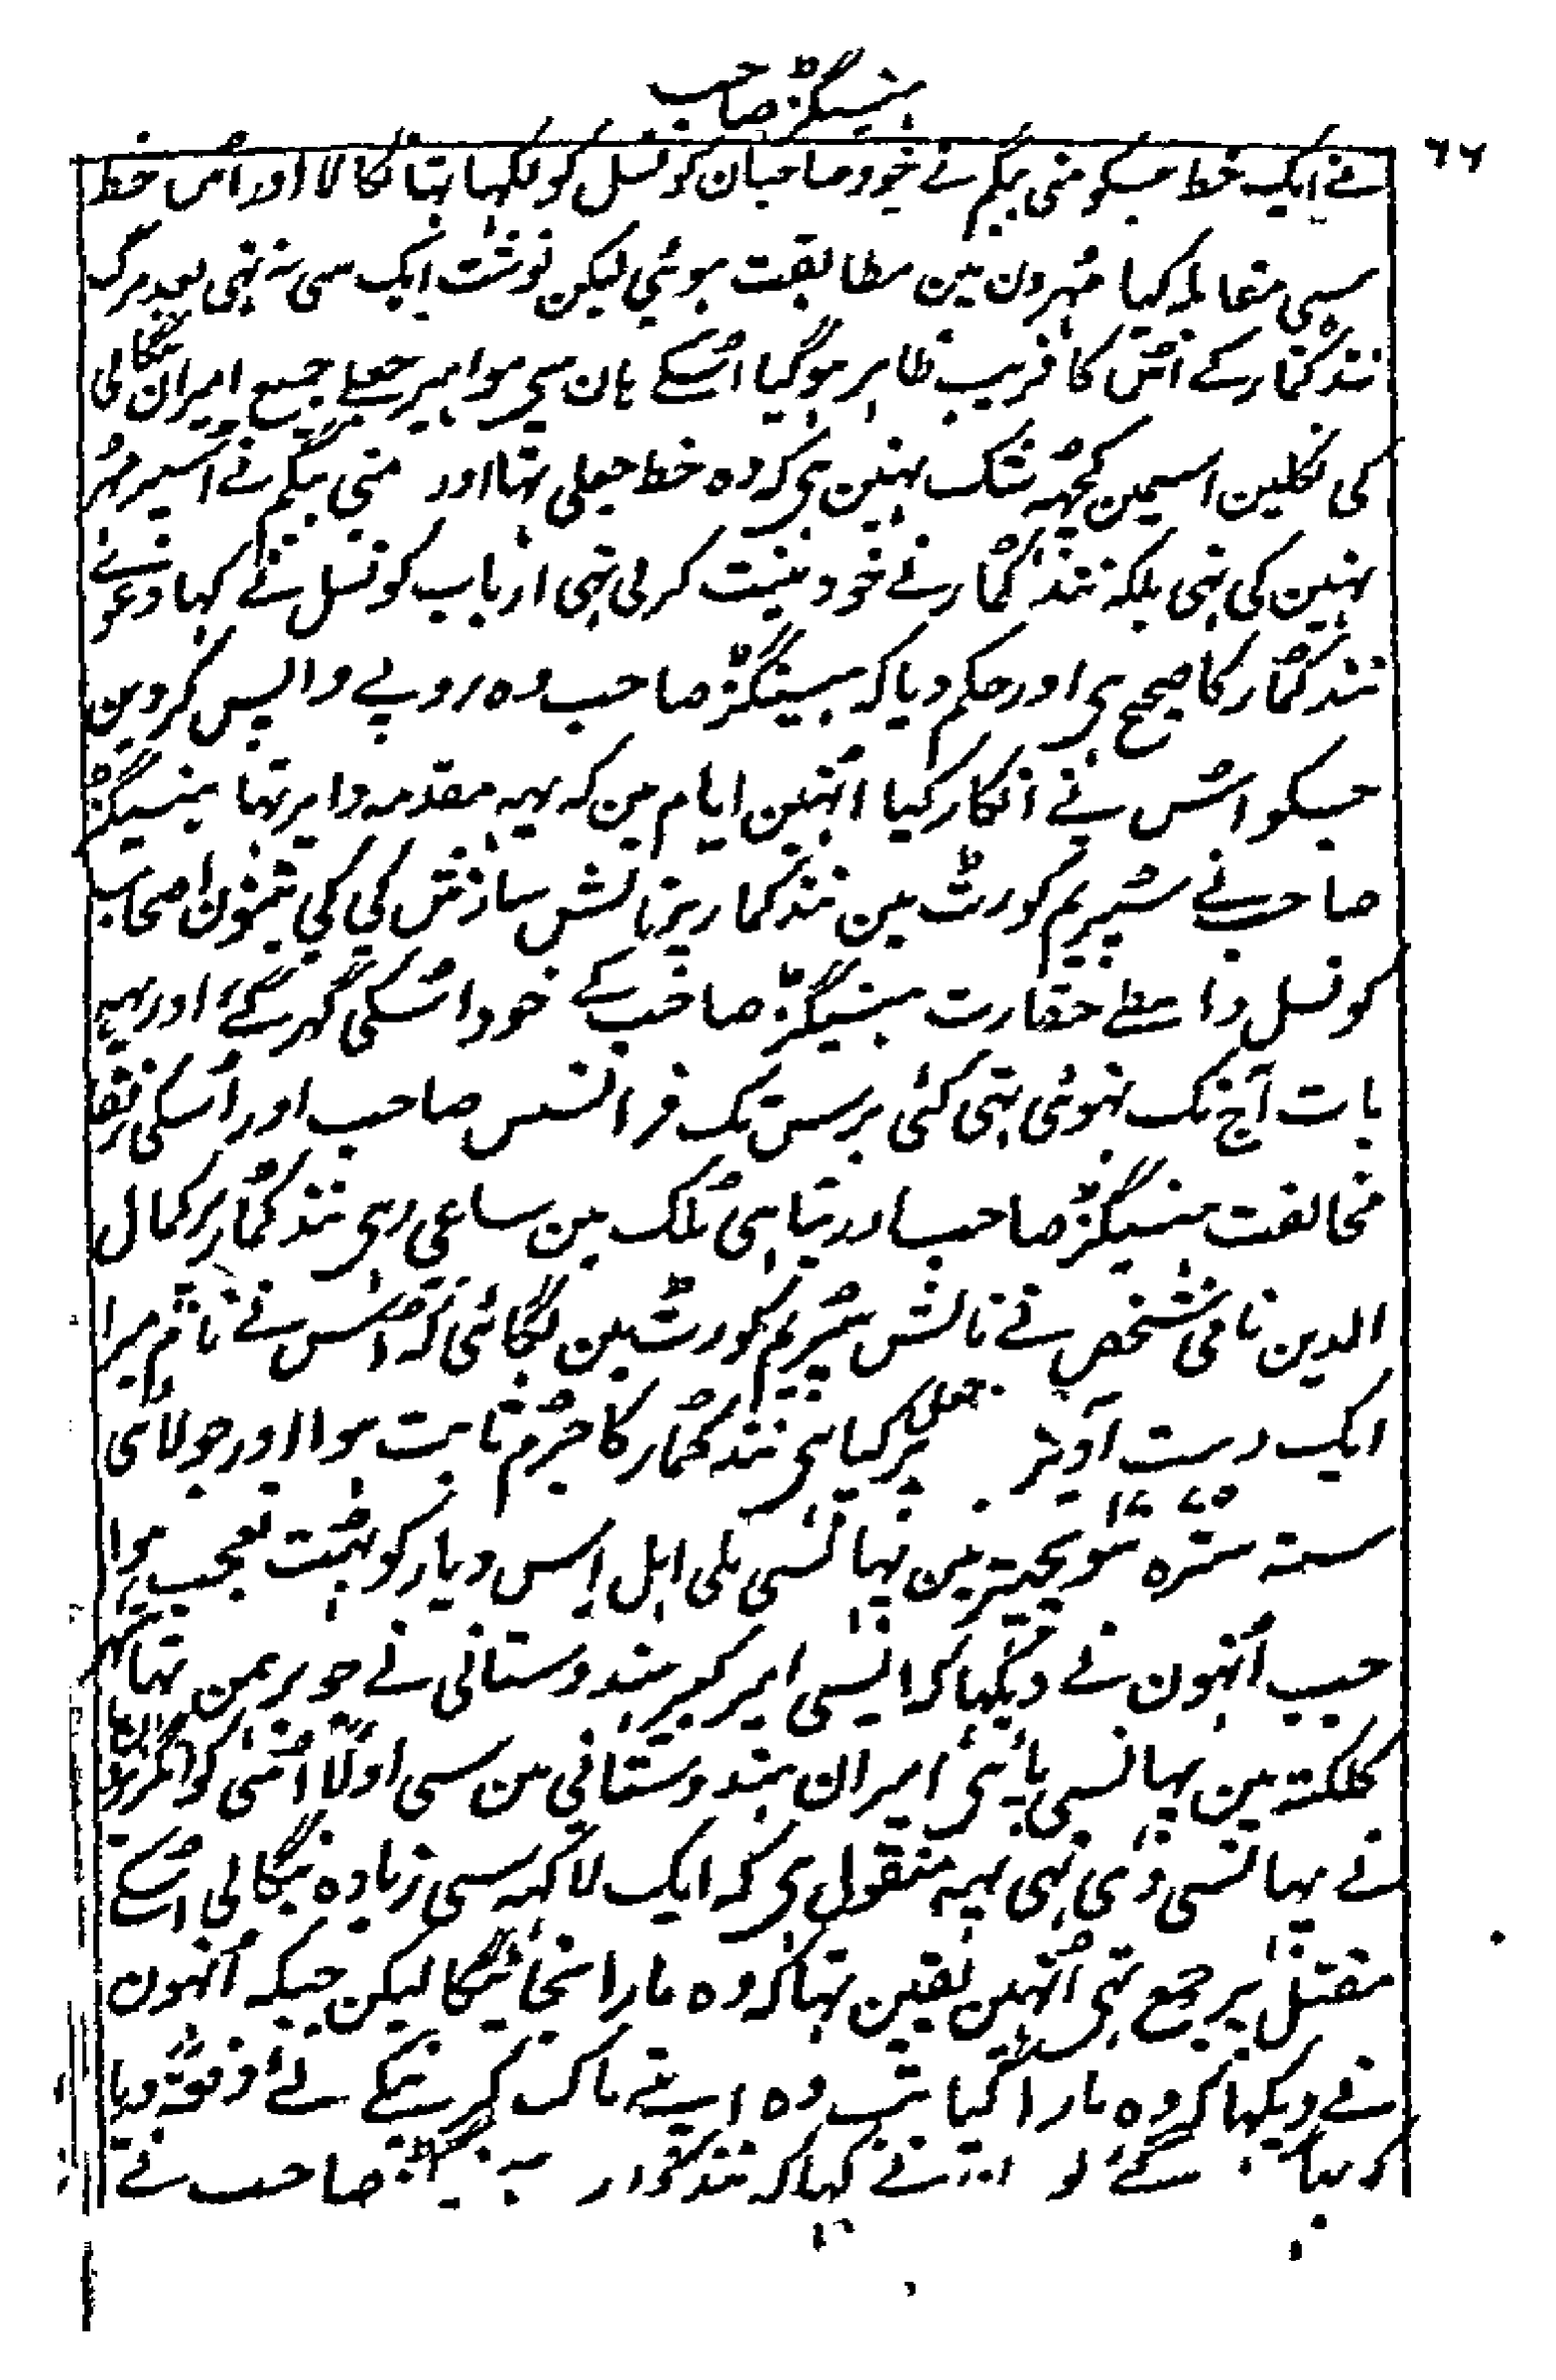 ہنسیگز صاحب
۶۶
نے ایک خط جسکو منی بیگم نے خود صاحبان کونسل کو لکہا تہا نکالا اور اُس خط
سی مقابلہ کیا مُہرون مین مطابقت ہوئی لیکن نوشت ایک سی نہ تہی بعد مرگ
نندکُمار کے اُس کا فریب ظاہر ہوگیا اُسکے ہان سی مواہیر جعلی جمیع امیران بنگالی
کی نکلین اسمین کچہہ شک نہین ہی کہ وہ خط جعلی تہا اور منی بیگم نے اُسپر مُہر
نہین کی تہی بلکہ نندکُمار نے خود ثبت کرلی تہی ارباب کونسل نے کہا دعوے
نندکُمار کا صحیح ہی اور حکم دیا کہ ہسینگز صاحب وہ روپے واپس کردین
جسکو اُس نے انکار کیا اُنہین ایام مین کہ یہہ مقدمہ دایر تہا ہنسیگز
صاحب نے سُپریم کورٹ مین نندکمار پر نالش سازش کی کی تینون اصحاب
کونسل واسطے حقارت ہنسیگز صاحب کے خود اُسکی گہر گئے اور یہہ
بات آج تک نہوئی تہی کئی برس تک فرانسس صاحب اور اُسکی رفقا
مخالفت ہنسیگز صاحب اور تباہی مُلک مین ساعی رہی نندکُمار پر کمال
الدین نامی شخص نے نالش سُپریم کورٹ مین لگائی کہ اُس نے نام میرا
ایک دست آویز جعلی پر کیا ہی نندکُمار کا جُرم ثابت ہوا اور جولائی
۱۷۷۵
سنہ سترہ سو پچہتر مین پہانسی ملی اہل اِس دیار کو بہُت تعجب ہوا
جب اُنہون نے دیکہا کہ ایسی امیر کبیر ہندوستانی نے جو برہمن تہا
کلکتہ مین پہانسی پائی ہی امیران ہندوستانی مین سی اولًا اُسی کو انگریزون
نے پہانسی دی تہی یہہ منقول ہی کہ ایک لاکہہ سی زیادہ بنگالی اُسکے
مقتل پر جمع تہی اُنہین یقین تہا کہ وہ مارا نجائیگا لیکن جبکہ اُنہون
نے دیکہا کہ وہ مارا گیا تب وہ اپنے پاک کرنیکے لئے دفعۃً دریا
گئے نے کہا کہ صاحب نے